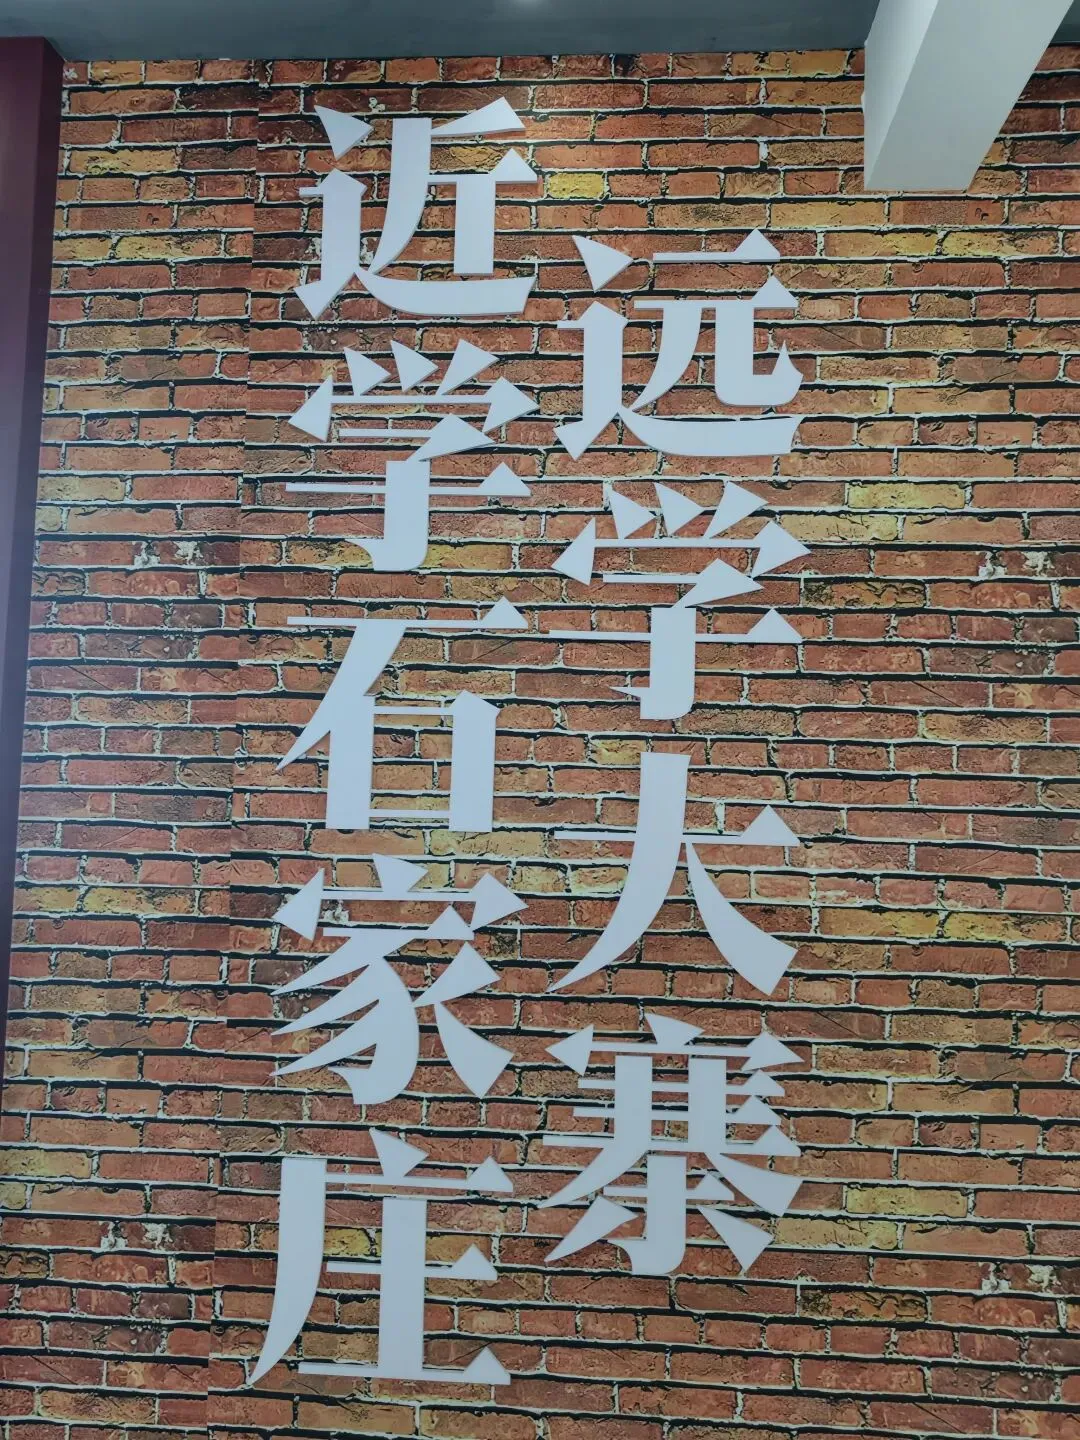 远学大寨
近学石家庄